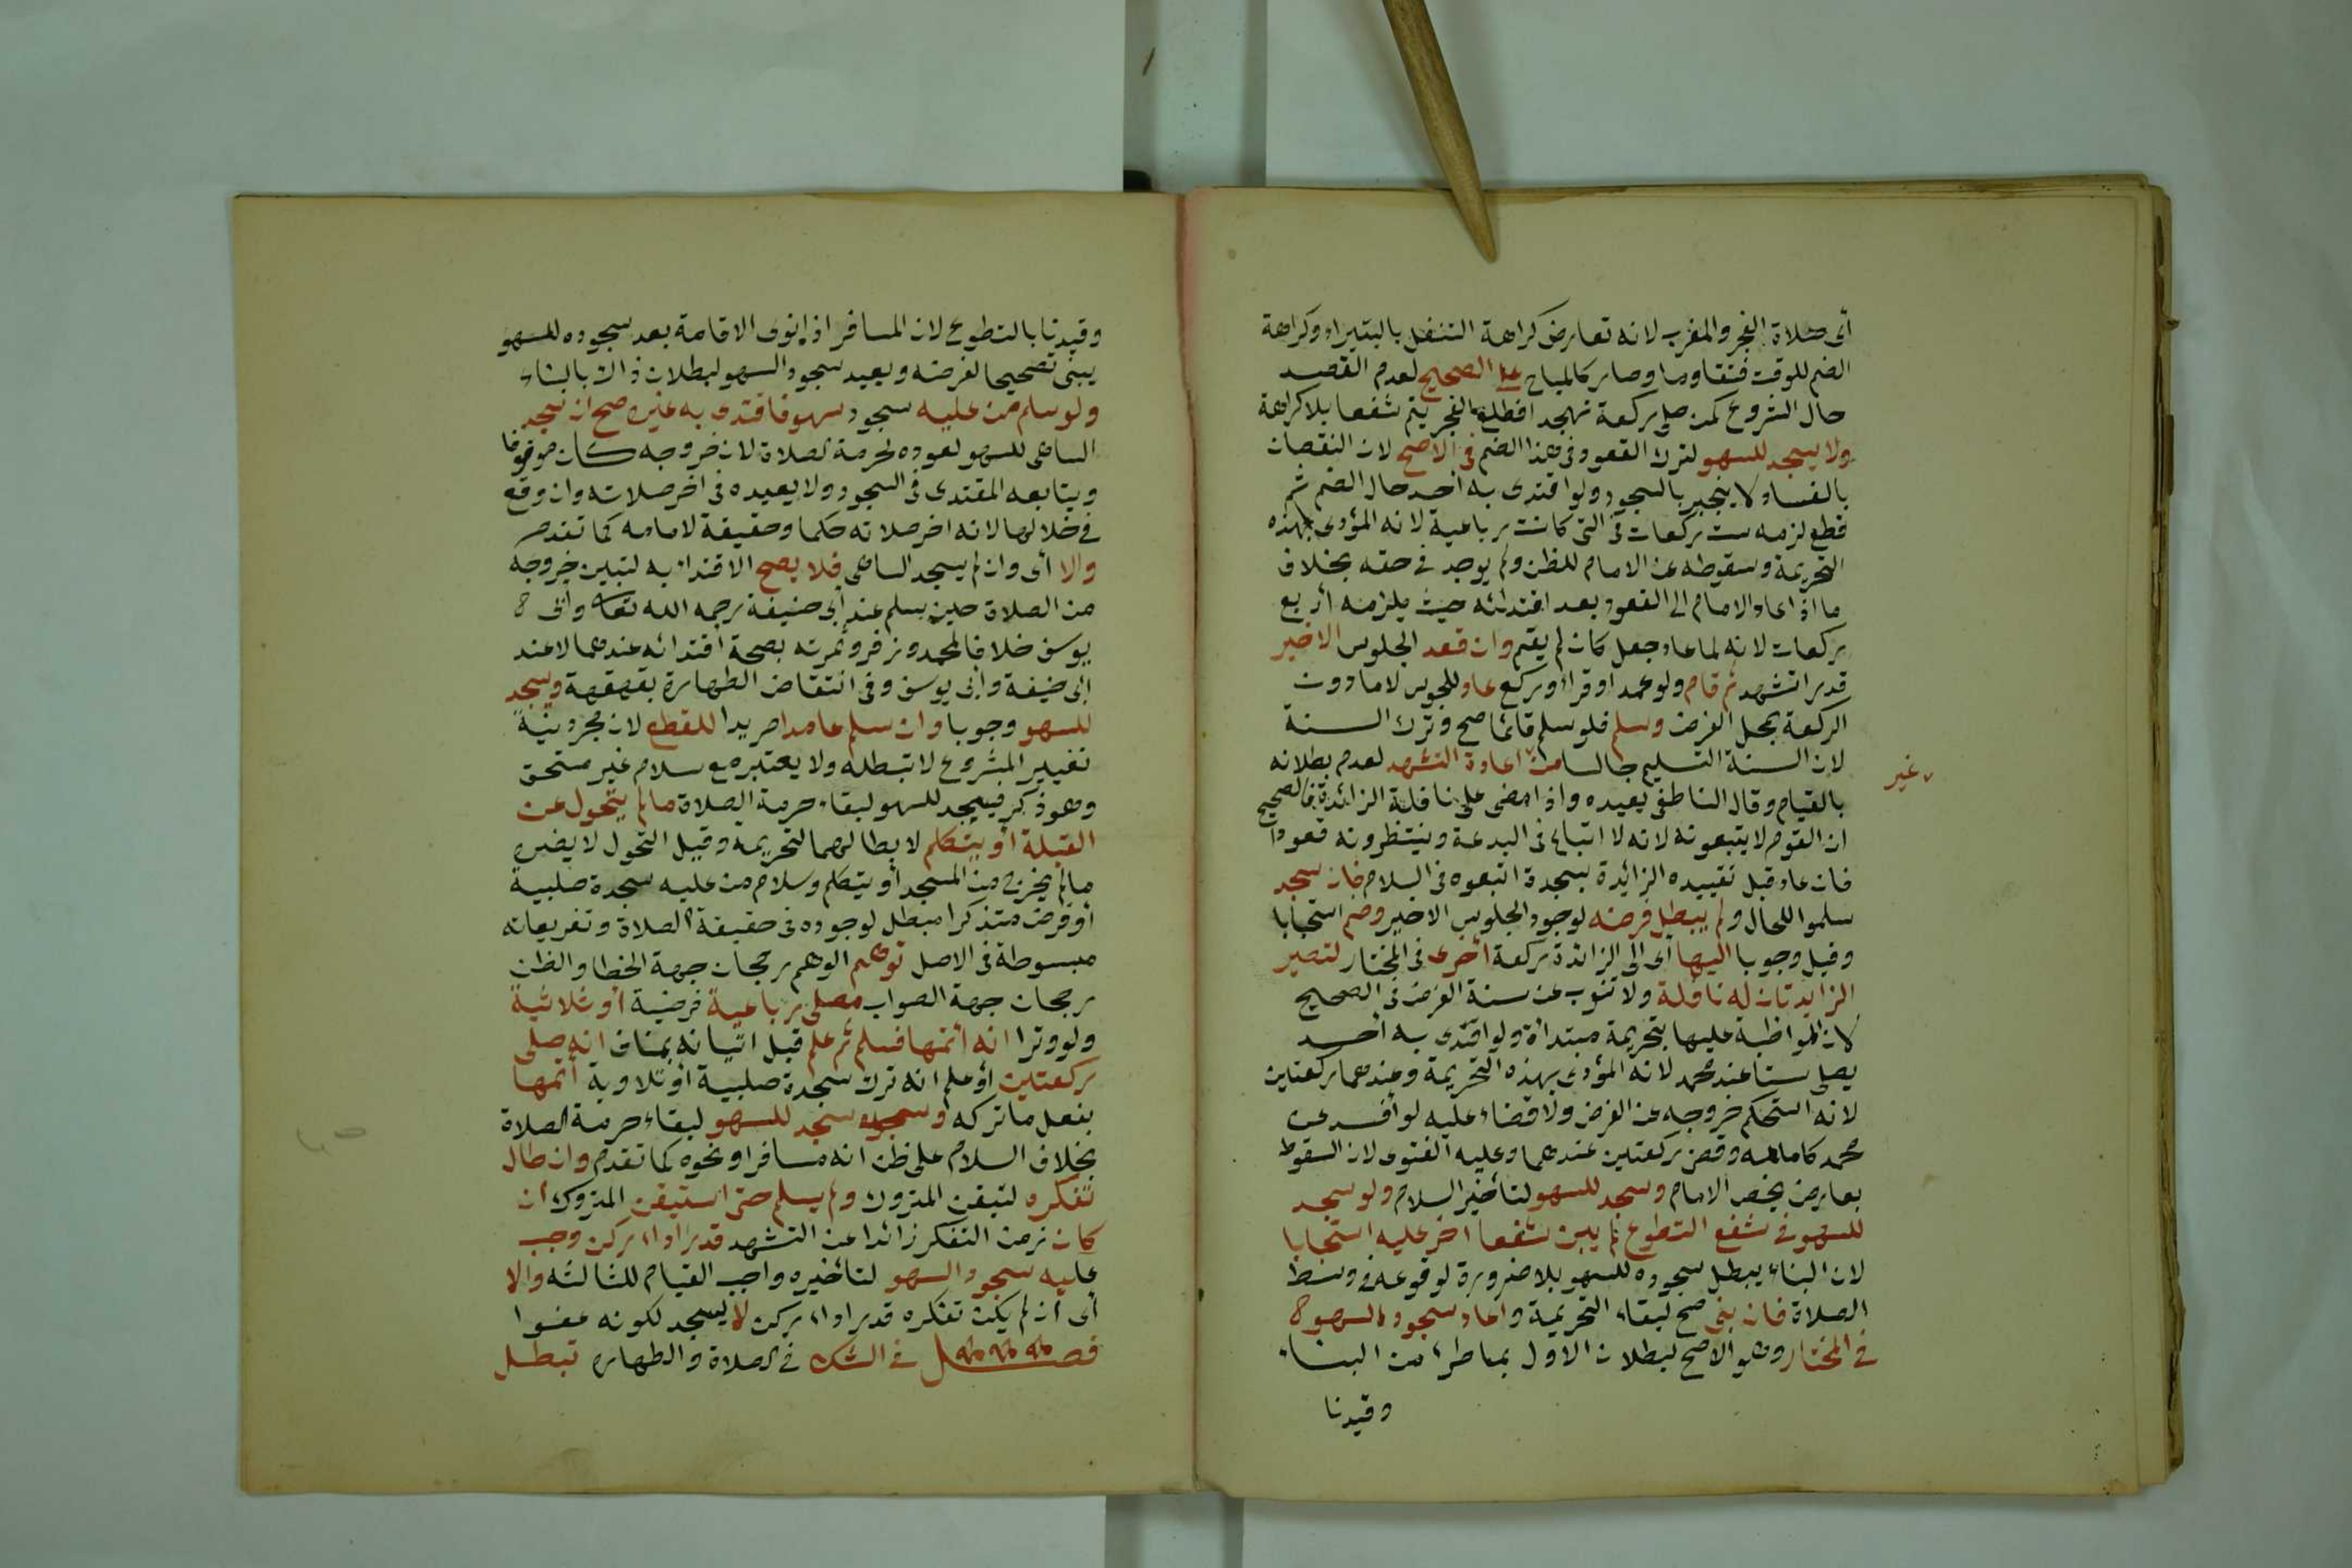 أى صلاة الفجر والمغرب لانه تعارض كراهة التنفل بالبتيراء وكراهة
الضم للوقت فتقاوما وصار كالمباح على الصحيح لعدم القصد
حال الشروع كمن صلى ركعة تهجد افطلع الفجر يتم شفعا بلا كراهة
ولا يسجد للسهو لترك القعود فى هذا الضم فى الاصح لان النقصان
بالفساد لا ينجبر بالسجود ولو اقتدى به أحد حال الضم ثم
قطع لزمه ست ركعات فى التى كانت رباعية لانه المؤدى بهذه
التحريمة وسقوطه عن الامام للظن ولم يوجد فى حقه بخلاف
ما اذا عاد الامام الى القعود بعد اقتدائه حيث يلزمه أربع
ركعات لانه لما عاد جعل كان لم يقم وان قعد الجلوس الاخير
قدر التشهد ثم قام ولو عمدا وقرأ وركع عاد للجلوس لاما دون
الركعة بمحل الفرض وسلم فلو سلم قائما صح وترك السنة
لان السنة التسليم جالسا من اعادة التشهد لعدم بطلانه
غير
بالقيام وقال الناطفى يعيده واذا مضى على نافلة الزائدة فالصحيح
ان القوم لا يتبعونه لانه لا اتباع فى البدعة وينتظرونه قعودا
فان عاد قبل تقييده الزائدة بسجدة اتبعوه فى السلام فان سجد
سلموا للحال ولم يبطل فرضه لوجود الجلوس الاخير وضم استحبابا
وقيل وجوبا اليها أى الى الزائدة ركعة أخرى فى المختار لتصير
الزايدتان له نافلة ولا تنوب عن سنة الفرض فى الصحيح
لان المواظبة عليها بتحريمة مبتدأة ولو اقتدى به أحد
يصلى ستا عند محمد لانه المؤدى بهذه التحريمة وعندهما ركعتين
لانه استحكم خروجه عن الفرض ولا قضاء عليه لو أفسد عن
محمد كامامه وقضى ركعتين عندهما وعليه الفتوى لان السقوط
بعارض يخص الامام وسجد للسهو لتأخير السلام ولو سجد
للسهو فى شفع التطوع لم يبن شفعا اخر عليه استحبابا
لان البناء يبطل سجوده للسهو بلا ضرورة لوقوعه فى وسط
الصلاة فان بنى صح لبقاء التحريمة واعاد سجود السهو
فى المختار وهو الاصح لبطلان الاول بما طرا من البناء
وقيدنا
وقيدنا بالتطوع لان المسافر اذا نوى الاقامة بعد سجوده للسهو
يبنى تصحيحا لفرضه ويعيد سجود السهو لبطلان ذاك بالبناء
ولو سلم من عليه سجود سهو فاقتدى به غيره صح ان سجد
الساهى للسهو لعوده لحرمة الصلاة لان خروجه كان موقوفا
ويتابعه المقتدى فى السجود ولا يعيده فى اخر صلاته وان وقع
فى خلالها لانه اخر صلاته حكما وحقيقة لامامه كما تقدم
والا أى وان لم يسجد الساهى فلا يصح الاقتداء به لتبين خروجه
من الصلاة حين سلم عند أبى حنيفة رحمه الله تعالى وأبى
يوسف خلافا لمحمد وزفر وثمرته بصحة اقتدائه عندهما لا عند
ابى حنيفة وأبى يوسف وفى انتقاض الطهارة بقهقهة وسجد
للسهو وجوبا وان سلم عامدا مريدا للقطع لان مجرد نية
تغيير المشروع لا تبطله ولا يعتبر مع سلام غير مستحق
وهو ذكر فيسجد للسهو لبقاء حرمة الصلاة ما لم يتحول عن
القبلة أو يتكلم لابطالهما التحريمة وقيل التحول لا يضره
ما لم يخرج من المسجد أو يتكلم وسلام من عليه سجدة صلبية
أو فرض متذكرا مبطل لوجوده فى حقيقة الصلاة وتفريعاته
مبسوطة فى الاصل توهم الوهم رجحان جهة الخطا والظن
رجحان جهة الصواب مصلى رباعية فرضية أو ثلاثية
ولو وترا انه أتمها فسلم ثم علم قبل اتيانه بمناف انه صلى
ركعتين أو علم انه ترك سجدة صلبية أو تلاوية أتمها
بفعل ما تركه وسجد للسهو لبقاء حرمة الصلاة
بخلاف السلام على ظن انه مسافر او نحوه كما تقدم وان طال
تفكره لتيقن المتروك ولم يسلم حتى استيقن المتروك ان
كان زمن التفكر زائدا عن التشهد قدر اداء ركن وجب
عليه سجود السهو لتأخيره واجب القيام للثالثة والا
أى ان لم يكن تفكره قدر اداء ركن لا يسجد لكونه عفوا
فصل فى الشك فى الصلاة والطهارة تبطل